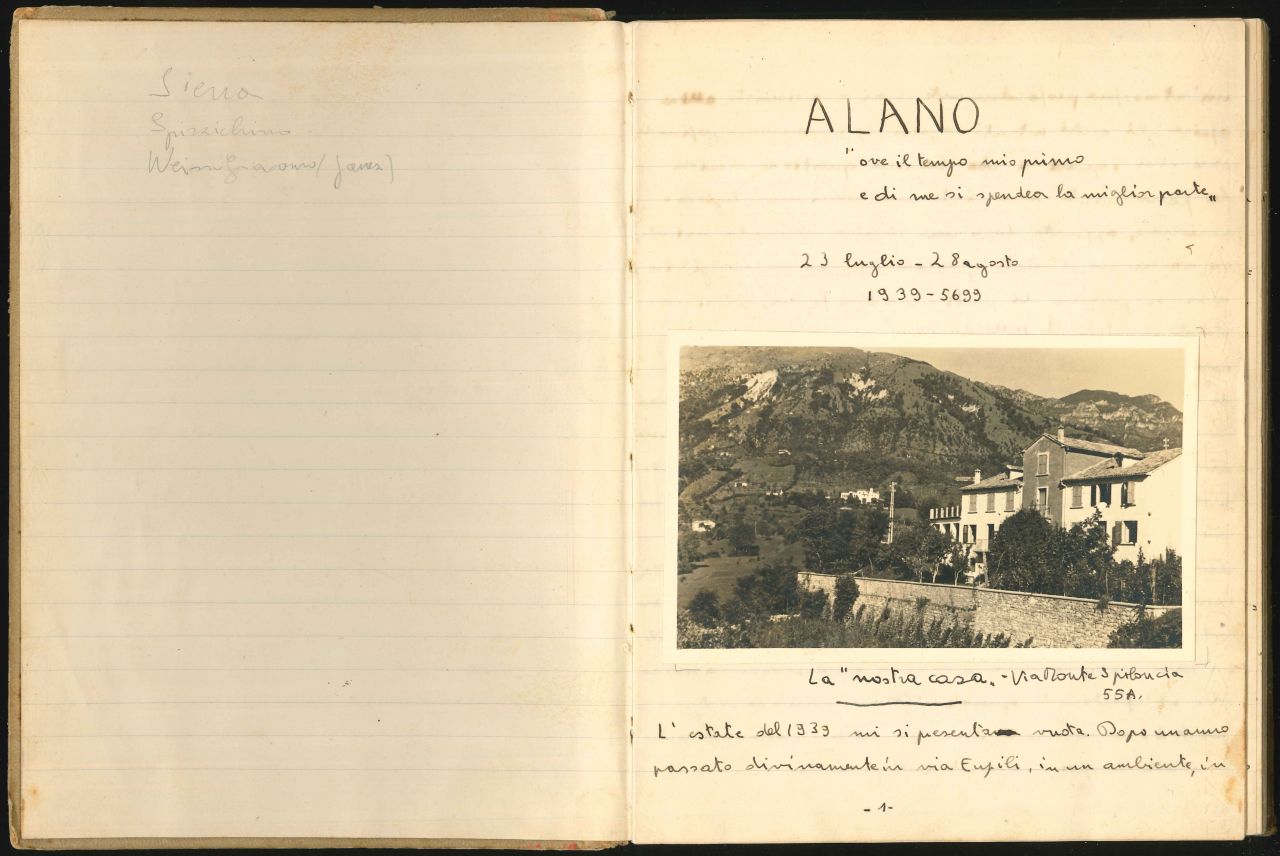 Siena
Spizzichino
Weiss Giacomo (James)
ALANO
"ove il tempo mio primo
e di me si spendea la miglior parte"
23 luglio - 28 agosto
1939 - 5699
La "nostra casa" - Via Monte Spiloncia
55A.
L'estate del 1939 mi si presenta vuota. Dopo un anno
passato divinamente in via Eupili, in un ambiente, in
- 1 -